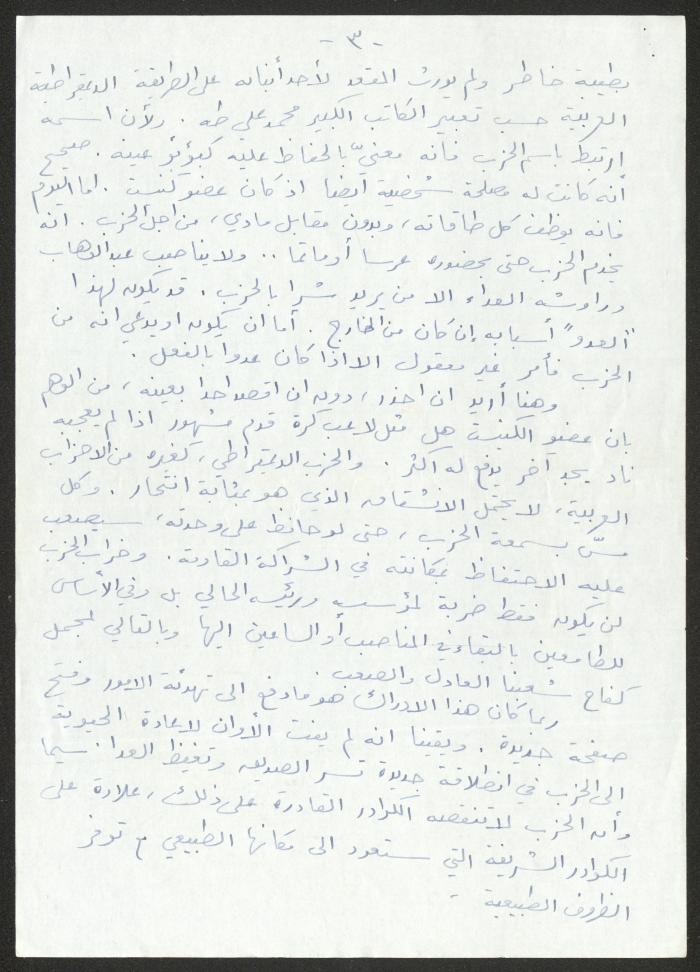 - ٣ -
بطيبة خاطر ولم يورث المقعد لأحد أبنائه على الطريقة الديمقراطية
العربية حسب تعبير الكاتب الكبير محمد علي طه. ولأن اسمه
ارتبط باسم الحزب فانه معنيّ بالحفاظ عليه كبؤبؤ عينه. صحيح
أنه كانت له مصلحة شخصية ايضا اذ كان عضو كنيست. اما اليوم
فانه يوظف كل طاقاته، وبدون مقابل مادي، من اجل الحزب. انه
يخدم الحزب حتى بحضوره عرسا أو مأتما .. ولا يناصب عبد الوهاب
دراوشه العداء الا من يريد شرا بالحزب. قد يكون لهذا
"العدو" أسبابه إن كان من الخارج. أما ان يكون او يدعي انه من
الحزب فأمر غير معقول الا اذا كان عدوا بالفعل.
وهنا أريد ان احذر، دون ان اقصد احدا بعينه، من الوهم
بان عضو الكنيست هل مثل لاعب كرة قدم مشهور اذا لم يعجبه
ناد يجد آخر يدفع له اكثر. والحزب الديمقراطي، كغيره من الاحزاب
العربية، لا يحتمل الانشقاق الذي هو بمثابة انتحار. وكل
مسّ بسمعة الحزب، حتى لو حافظ على وحدته، سيصعب
عليه الاحتفاظ بمكانته في الشراكة القادمة. وخراب الحزب
لن يكون فقط ضربة لمؤسسه ورئيسه الحالي بل وفي الأساس
للطامعين بالبقاء في المناصب أو الساعين اليها وبالتالي لمجمل
كفاح شعبنا العادل والصعب.
ربما كان هذا الادراك هو ما دفع الى تهدئة الامور وفتح
صفحة جديدة. ويقينا انه لم يفت الأوان لاعادة الحيوية
الى الحزب في انطلاقة جديدة تسر الصديق وتغيظ العدا. سيما
وأن الحزب لا تنقصه الكوادر القادرة على ذلك، علاوة على
الكوادر الشريفة التي ستعود الى مكانها الطبيعي مع توفر
الظروف الطبيعية -